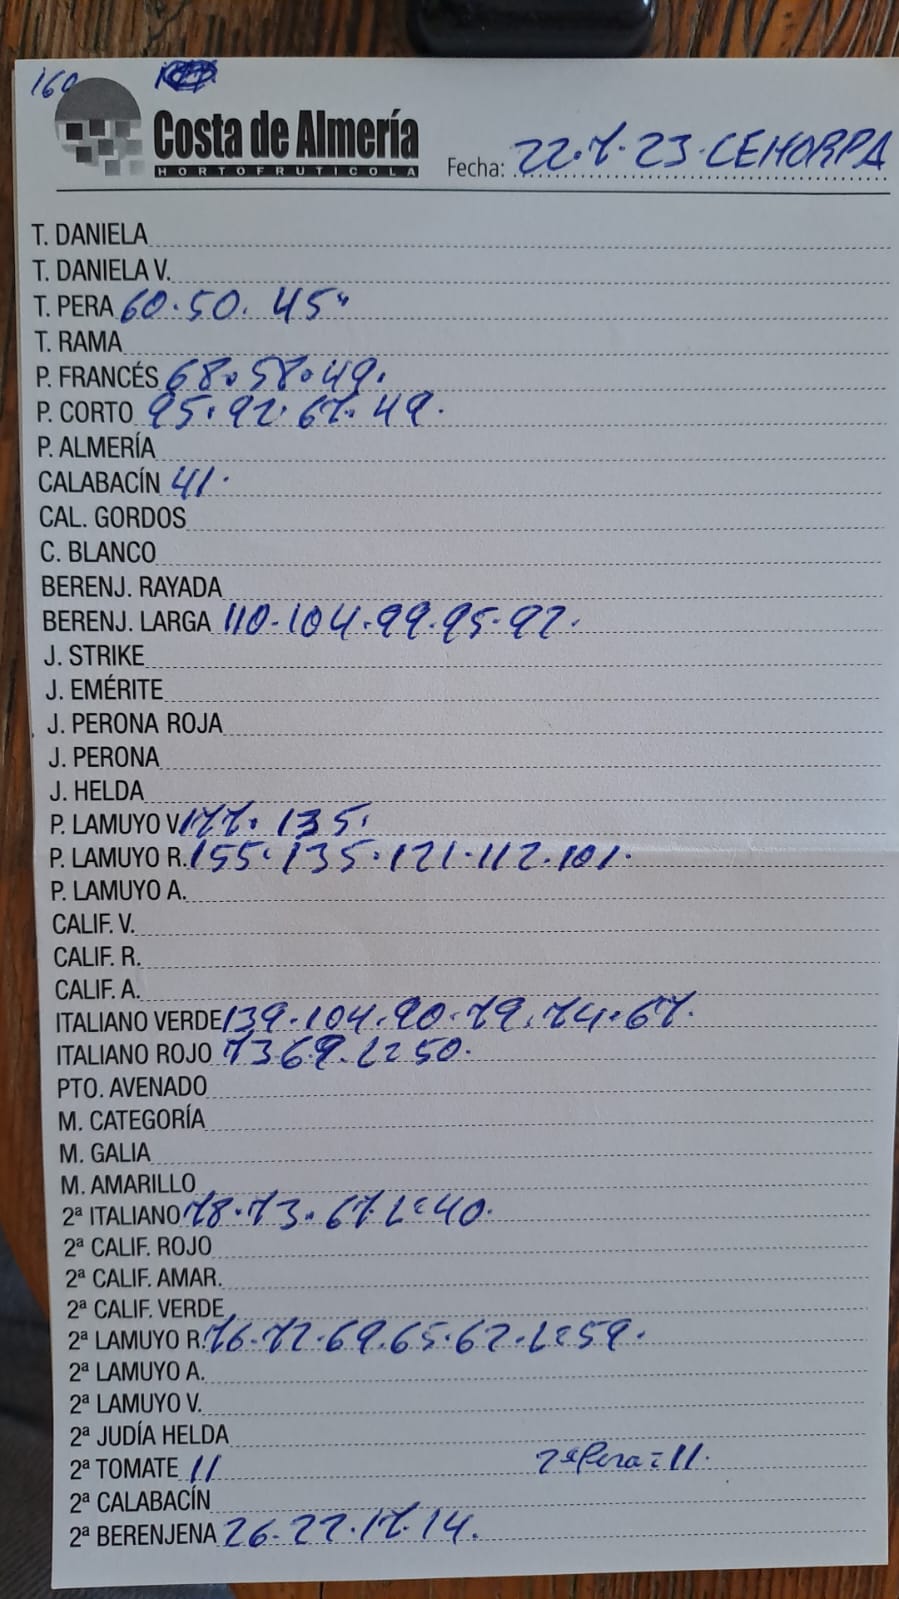 160
Costa de Almería
HORTOFRUTICOLA
Fecha: 22.7.23 CEHORPA
T. DANIELA
T. DANIELA V.
T. PERA 60.50. 45"
T. RAMA
P. FRANCÉS 68.58.49.
P. CORTO 95.92.67.49.
P. ALMERÍA
CALABACÍN 41.
CAL. GORDOS
C. BLANCO
BERENJ. RAYADA
BERENJ. LARGA 110.104.99.95.92.
J. STRIKE
J. EMÉRITE
J. PERONA ROJA
J. PERONA
J. HELDA
P. LAMUYO V. 177. 135.
P. LAMUYO R. 155.135.121.112.101.
P. LAMUYO A.
CALIF. V.
CALIF. R.
CALIF. A.
ITALIANO VERDE 139.104.90.79.74.67.
ITALIANO ROJO 73 69. L=50.
PTO. AVENADO
M. CATEGORÍA
M. GALIA
M. AMARILLO
2ª ITALIANO 78.73.67.L=40.
2ª CALIF. ROJO
2ª CALIF. AMAR.
2ª CALIF. VERDE
2ª LAMUYO R. 76.72.69.65.62.L=59.
2ª LAMUYO A.
2ª LAMUYO V.
2ª JUDÍA HELDA
2ª TOMATE 11 2ª Pera = 11.
2ª CALABACÍN
2ª BERENJENA 26.22.17.14.